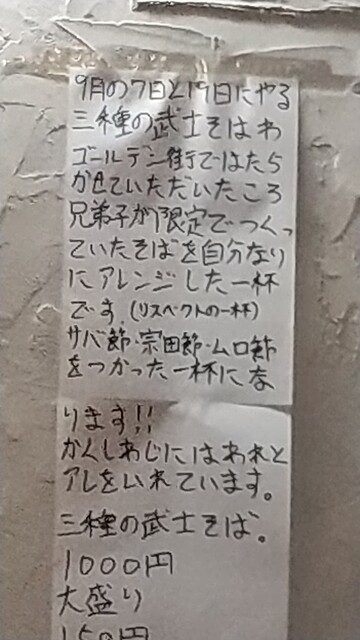 9月の7日と19日にやる
三種の武士そばわ
ゴールデン街ではたら
かせていただいたころ
兄弟子が限定でつくっ
ていたそばを自分なり
にアレンジした一杯
です。(リスペクトの一杯)
サバ節・宗田節・ムロ節
をつかった一杯にな
ります!!
かくしあじにはあれと
アレをいれています。
三種の武士そば。
1000円
大盛り
150円